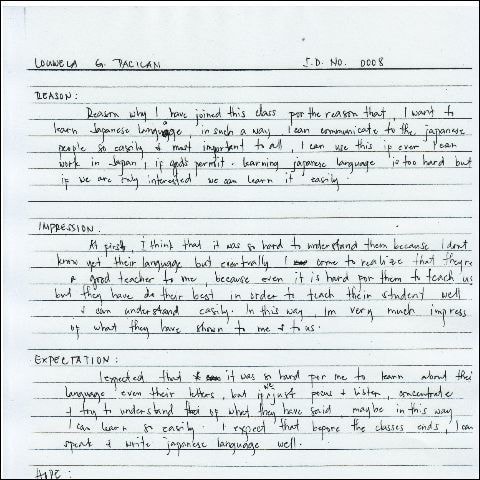 LOUWELA G. PACILAN I.D. NO. 0008
REASON :
Reason why I have joined this class for the reason that, I want to
learn Japanese language, in such a way, I can communicate to the japanese
people so easily & most important to all, I can use this if ever I can
work in Japan, if god's permit. learning japanese language is too hard but
if we are only interested we can learn it easily.
IMPRESSION :
At first, I think that it was so hard to understand them because I dont
know yet their language but eventually I come to realize that they're
a good teacher to me, because even it is hard for them to teach us
but they have do their best in order to teach their student well
& can understand easily. In this way, Im very much impress
of what they have shown to me & to us.
EXPECTATION :
I expected that it was so hard for me to learn about thei
language even their letters, but if we just focus & listen, concentrate
& try to understand of what they have said, maybe in this way
I can learn so easily. I expect that before the classes ends, I can
speak & write japanese language well.
HOPE :